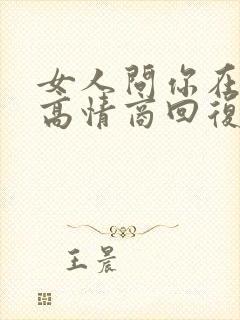 女人問你在
高情商回復
王晨